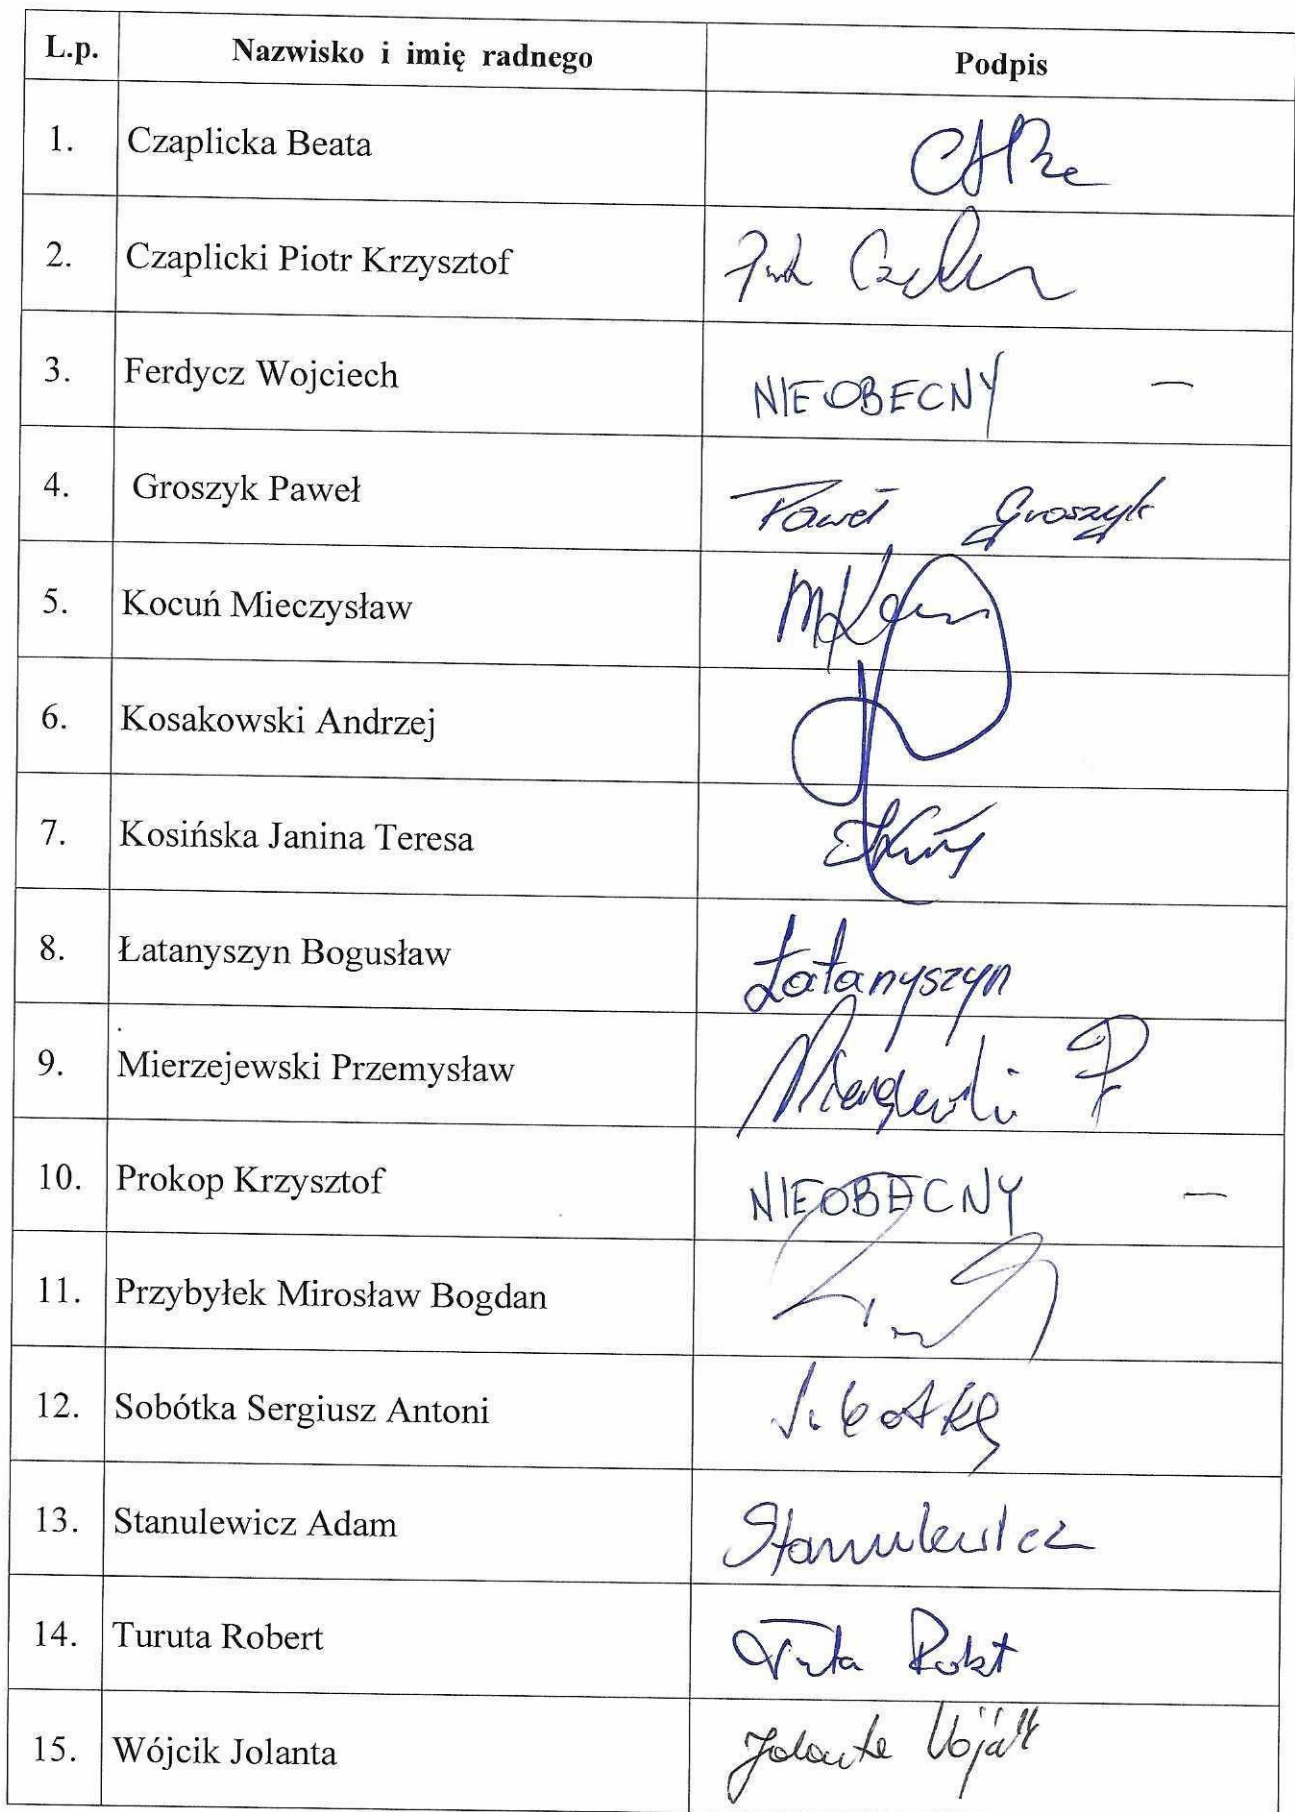 L.p. Nazwisko i imię radnego Podpis
1. Czaplicka Beata
2. Czaplicki Piotr Krzysztof
3. Ferdycz Wojciech NIEOBECNY —
4. Groszyk Paweł Paweł Groszyk
5. Kocuń Mieczysław
6. Kosakowski Andrzej
7. Kosińska Janina Teresa
8. Łatanyszyn Bogusław Łatanyszyn
9. Mierzejewski Przemysław
10. Prokop Krzysztof NIEOBECNY —
11. Przybyłek Mirosław Bogdan
12. Sobótka Sergiusz Antoni
13. Stanulewicz Adam Stanulewicz
14. Turuta Robert
15. Wójcik Jolanta Jolanta Wójcik